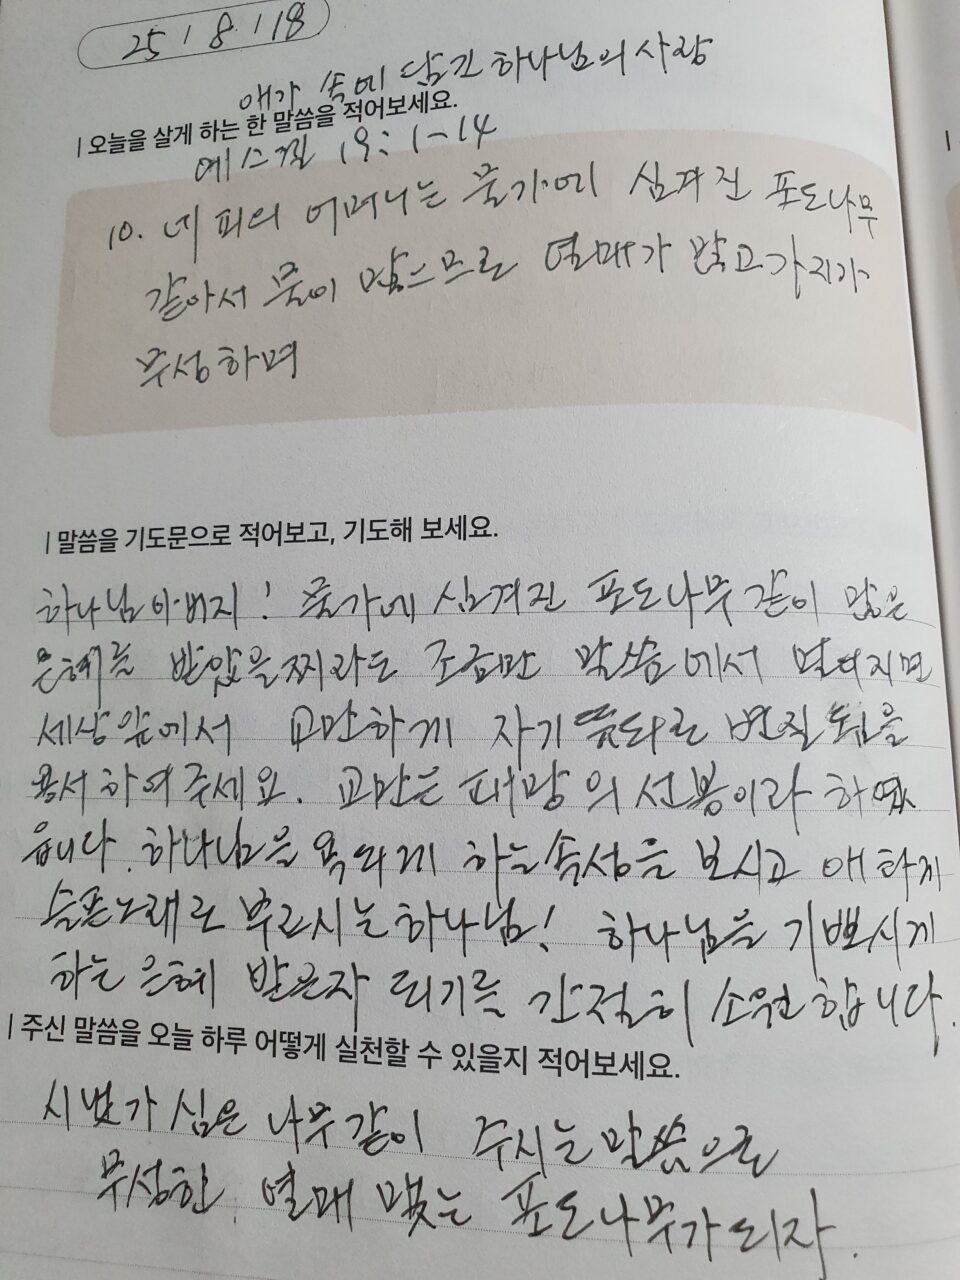 25 / 8 / 18
애가 속에 담긴 하나님의 사랑
| 오늘을 살게 하는 한 말씀을 적어보세요.
에스겔 19:1-14
10. 네 피의 어머니는 물가에 심겨진 포도나무
같아서 물이 많으므로 열매가 많고 가지가
무성하며
| 말씀을 기도문으로 적어보고, 기도해 보세요.
하나님 아버지! 물가에 심겨진 포도나무 같이 많은
은혜를 받았을찌라도 조금만 말씀에서 멀어지면
세상앞에서 교만하게 자기 뜻대로 변질됨을
용서하여주세요. 교만은 패망의 선봉이라 하였
읍니다. 하나님을 욕되게 하는 속성을 보시고 애타게
슬픈노래로 부르시는 하나님! 하나님을 기쁘시게
하는 은혜 받은자 되기를 간절히 소원합니다.
| 주신 말씀을 오늘 하루 어떻게 실천할 수 있을지 적어보세요.
시냇가 심은 나무같이 주시는 말씀으로
무성한 열매 맺는 포도나무가 되자.